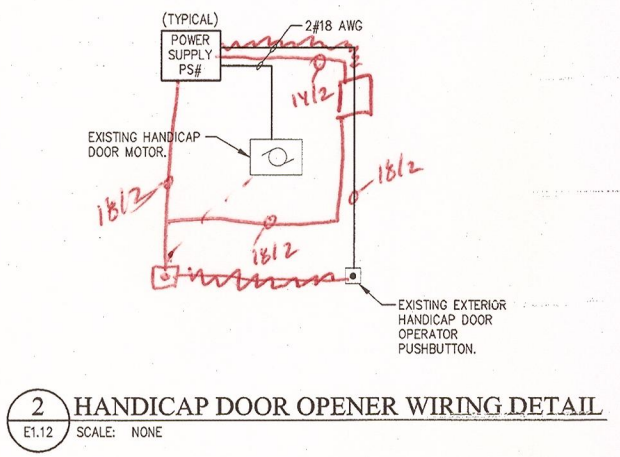 (TYPICAL)
POWER
SUPPLY
PS#
2#18 AWG
14/2
EXISTING HANDICAP
DOOR MOTOR.
18/2
18/2
18/2
EXISTING EXTERIOR
HANDICAP DOOR
OPERATOR
PUSHBUTTON.
2
HANDICAP DOOR OPENER WIRING DETAIL
E1.12
SCALE: NONE